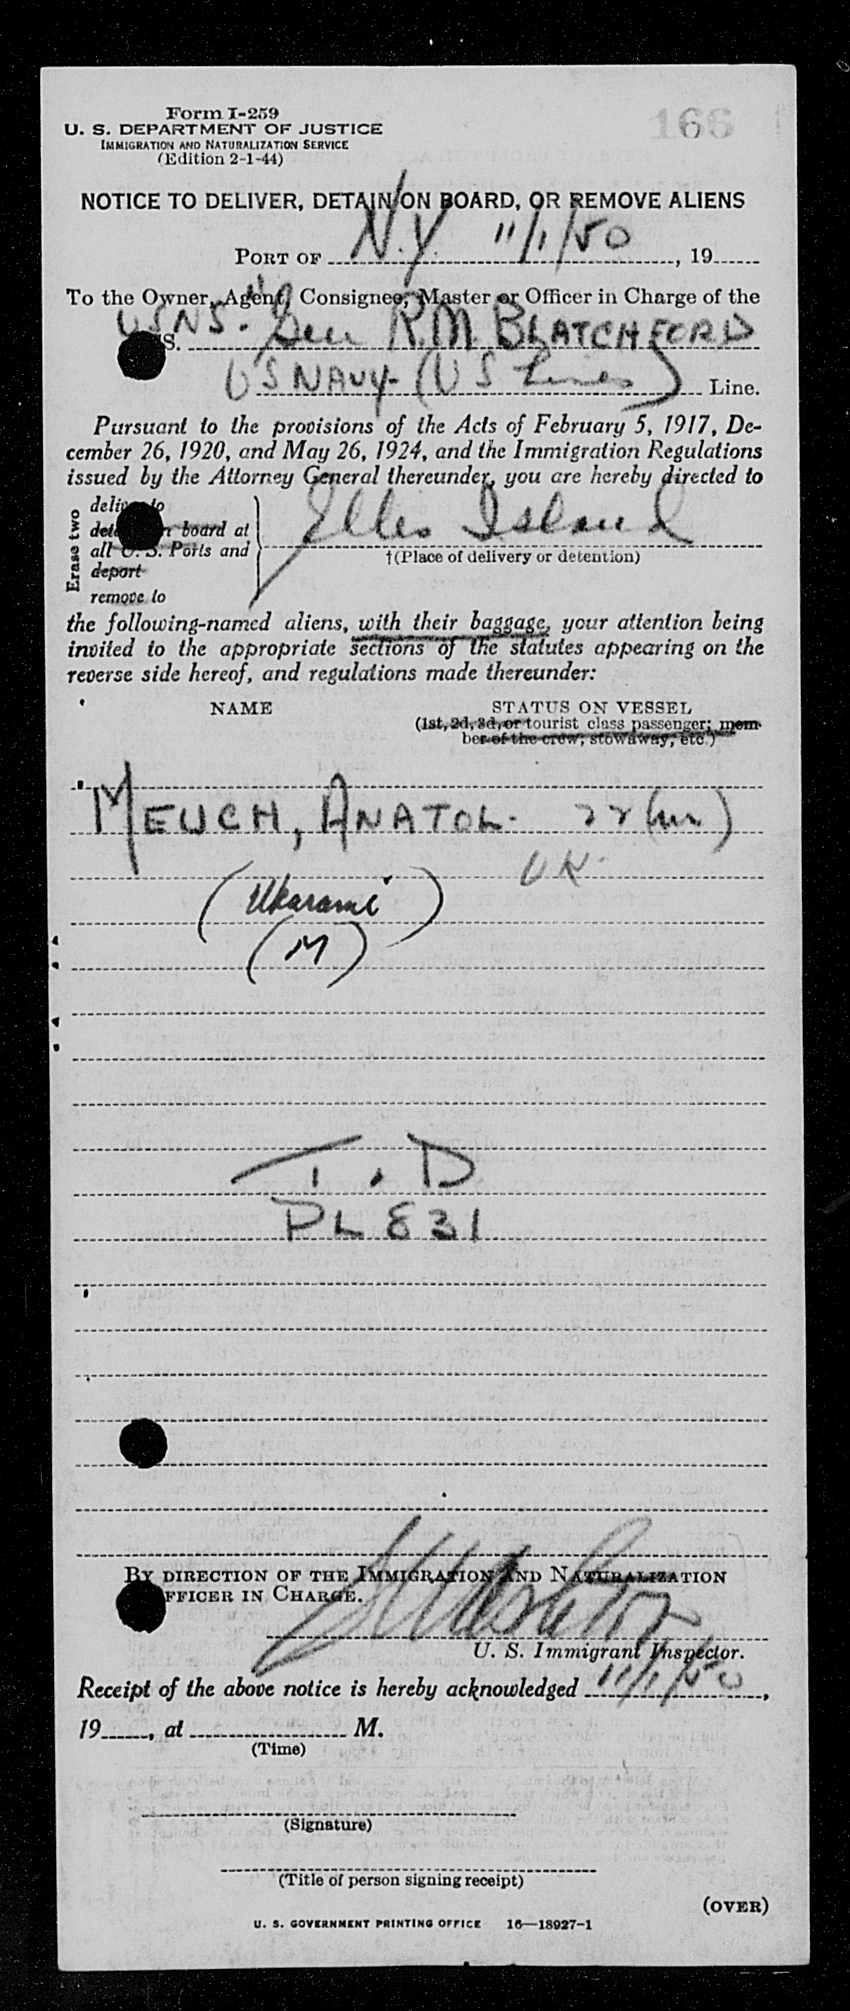 Form I-259
U. S. DEPARTMENT OF JUSTICE
IMMIGRATION AND NATURALIZATION SERVICE
(Edition 2-1-44)
166
NOTICE TO DELIVER, DETAIN ON BOARD, OR REMOVE ALIENS
PORT OF N.Y. 11/1/50, 19
To the Owner, Agent, Consignee, Master or Officer in Charge of the
USNS. Gen R.M. BLATCHFORD
S.
US NAVY (US Lines) Line.
Pursuant to the provisions of the Acts of February 5, 1917, De-
cember 26, 1920, and May 26, 1924, and the Immigration Regulations
issued by the Attorney General thereunder, you are hereby directed to
Erase two
deliver to
detain on board at
all U. S. Ports and
deport
remove to
Ellis Island
†(Place of delivery or detention)
the following-named aliens, with their baggage, your attention being
invited to the appropriate sections of the statutes appearing on the
reverse side hereof, and regulations made thereunder:
NAME STATUS ON VESSEL
(1st, 2d, 3d, or tourist class passenger; mem-
ber of the crew; stowaway, etc.)
MEUCH, ANATOL. 22 (m)
UK.
(M)
T.D
PL 831
BY DIRECTION OF THE IMMIGRATION AND NATURALIZATION
OFFICER IN CHARGE.
U. S. Immigrant Inspector.
Receipt of the above notice is hereby acknowledged 11/1/50,
19, at M.
(Time)
(Signature)
(Title of person signing receipt)
(OVER)
U. S. GOVERNMENT PRINTING OFFICE 16—18927-1